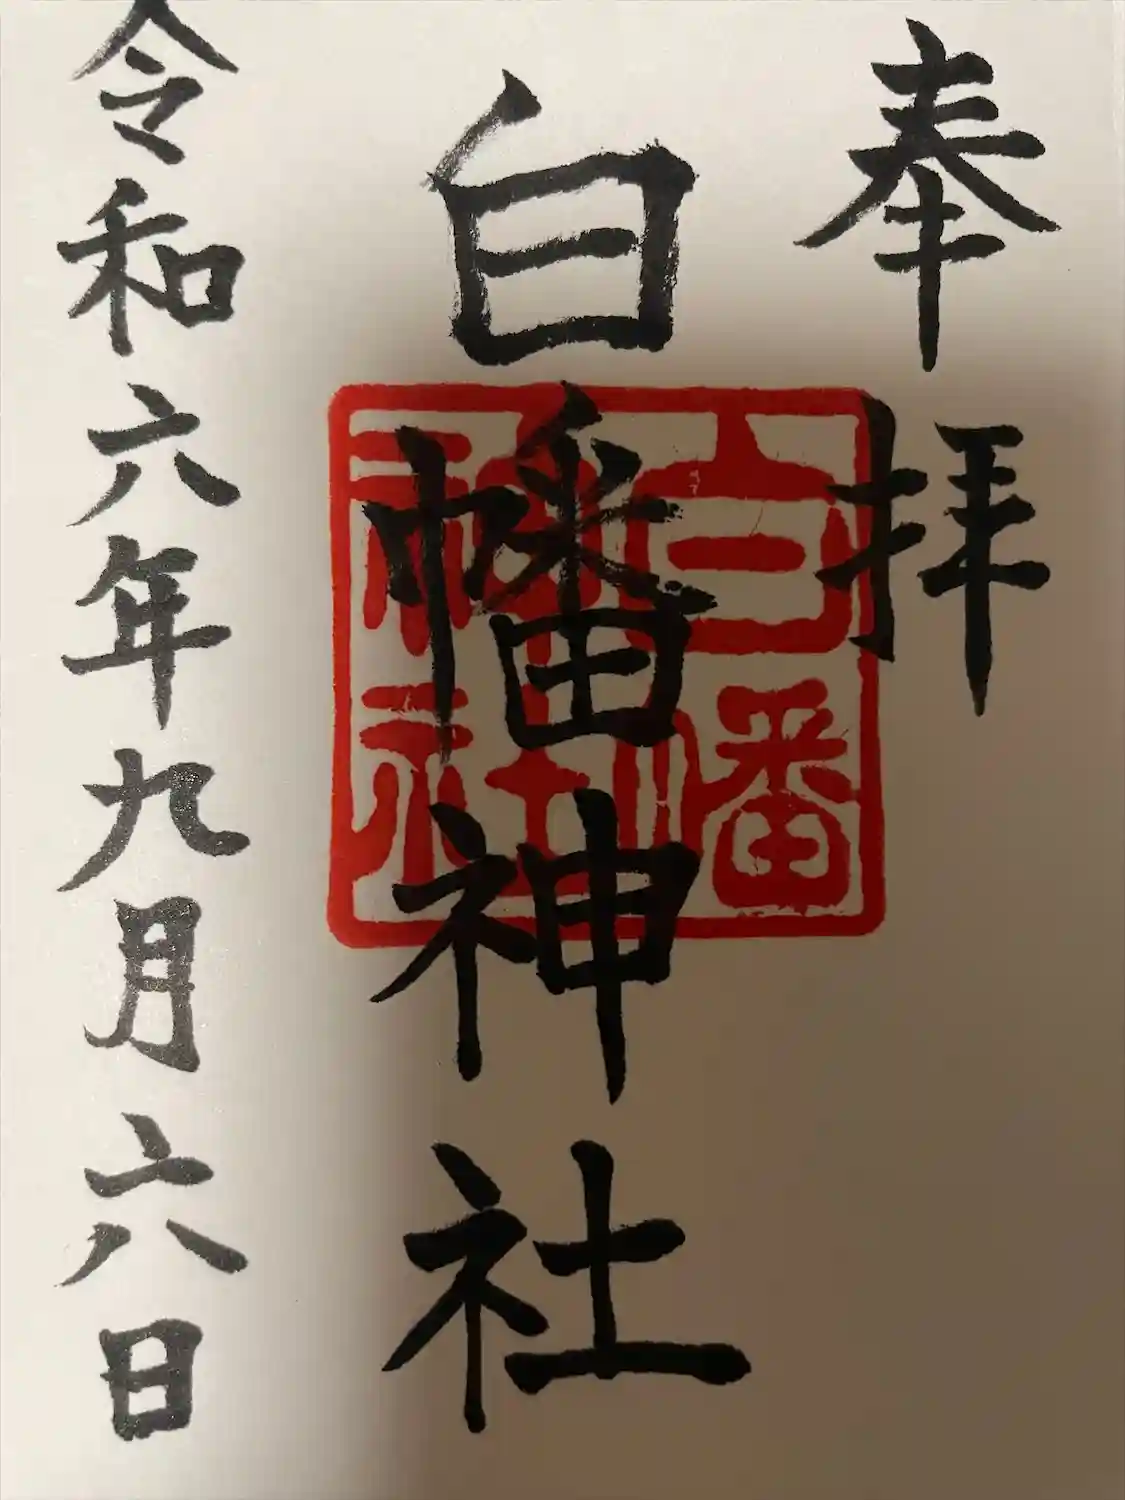 奉拝
白幡神社
白番神社
令和六年九月六日